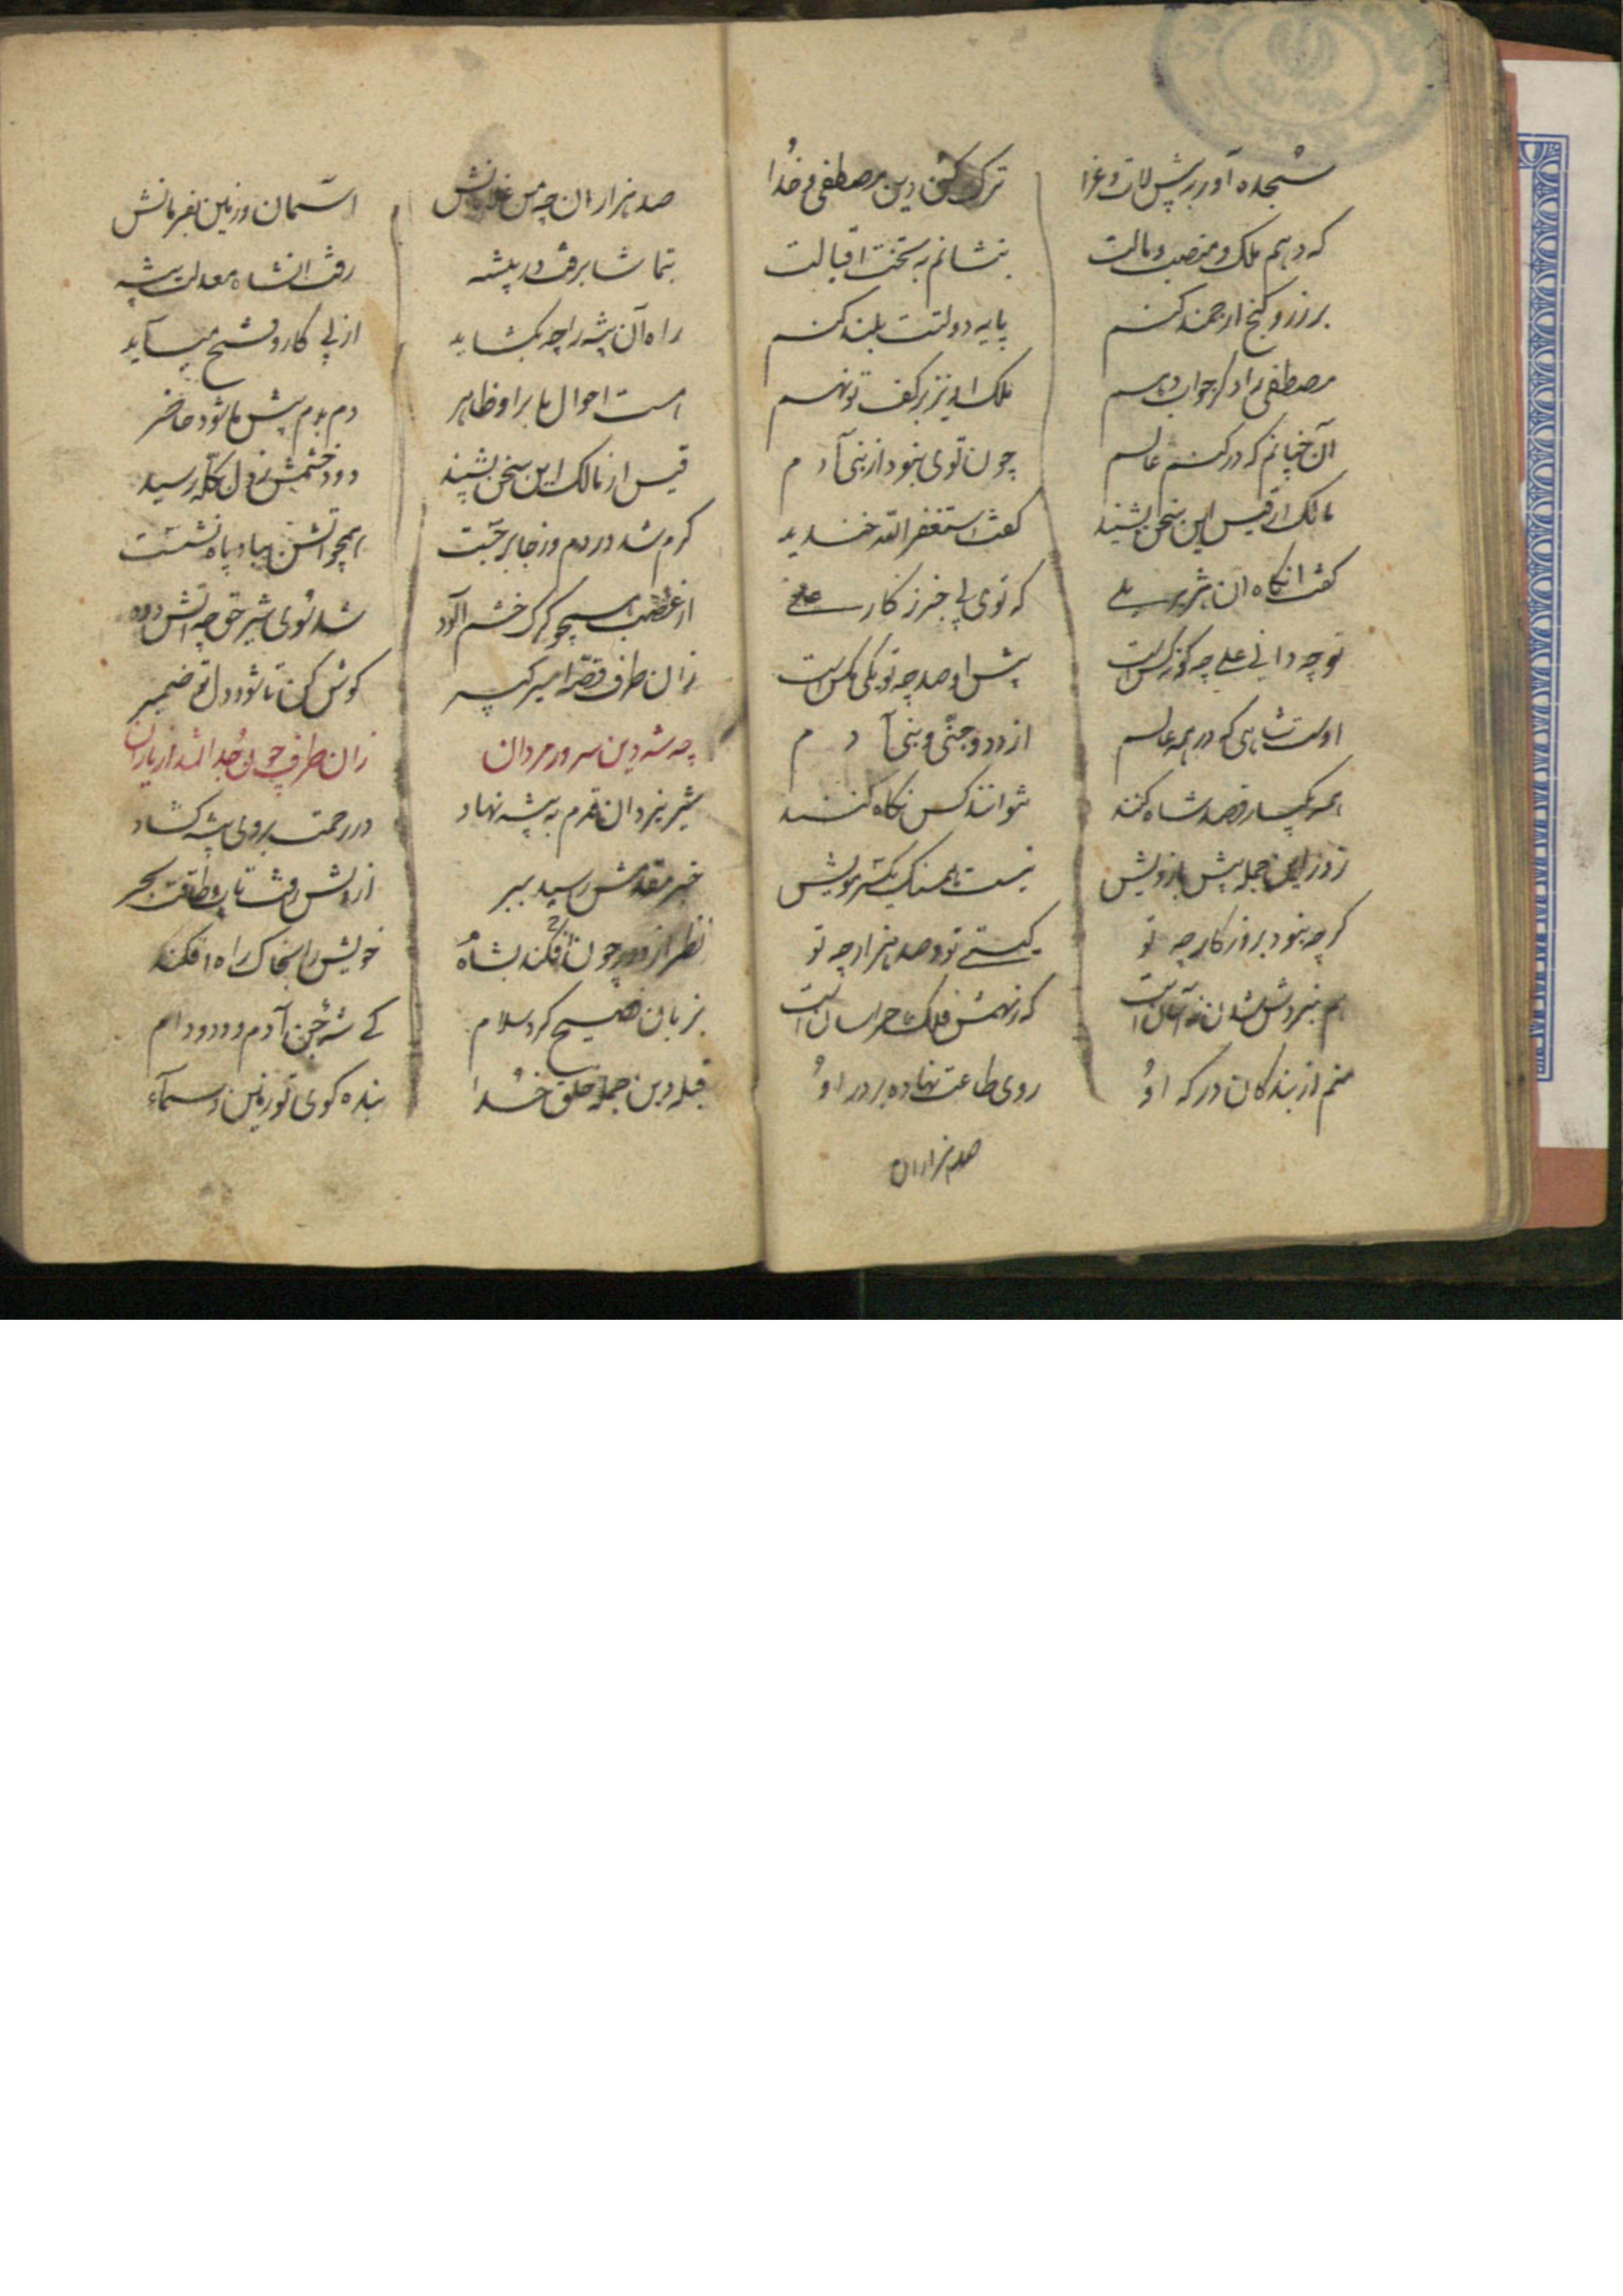 سجده آور به پیش لات و عزا ترک کن دین مصطفی و خدا
که دهم ملک و منصب و مالت بنشانم به تخت اقبالت
بر زر و گنج ارجمند کنم پایه دولتت بلند کنم
مصطفی را دگر جواب دهم ملک او نیز بر کف تو نهم
آن چنانم که در کنم عالم چون توی نبود از بنی آدم
مالک از قیس این سخن بشنید گفت استغفر الله خندید
گفت انگاه ان شریر که توی بی خبر ز کار علی
تو چه دانی علی چه کونه کس است پیش او صد چه تو یکی مکس است
اوست شاهی که در همه عالم از دد و جنی و بنی آدم
همه یکبار قصد شاه کنند نتوانند کس نکاه کنند
زور این جمله پیش بازویش نیست همسنک یکسر مویش
کرچه نبود بروز کار چه تو کیستی تو و صد هزار چه تو
هم نبردش شدن نه آسان است که ز نهمش فلک هراسان است
منم از بندکان درکه او روی طاعت نهاده بر در او
صد هزاران
صد هزاران چه من غلامانش اسمان و زمین بفرمانش
بتماشا برفت در بیشه رفت انشاه معدلت پیشه
راه آن بیشه را چه بکشاید از پی کار و فتح میآید
هست احوال ما بر او ظاهر دم بدم پیش ما شود حاضر
قیس از مالک این سخن بشنید دود خشمش ز دل بکله رسید
کرم شد در دم و ز جا برجست همچو آتش بباد پا بنشست
از غضب همچو کرک خشم الود شد سوی شیر حق چه آتش و دود
زان طرف قصه امیر کبیر کوش کن تا شود دل تو ضمیر
چه شه دین سرور مردان زان طرف چون جدا شد از یاران
شیر یزدان قدم به بیشه نهاد در رحمت بروی بیشه کشاد
خبر مقدمش رسید ببر از دلش رفت تاب و طاقت
نظر از دور چون فکند بشاه خویش را بخاک راه افکند
بزبان فصیح کرد سلام کی شه جن و آدم و دد و دام
قبله دین جمله خلق خدا بنده کوی تو زمین و سمآء